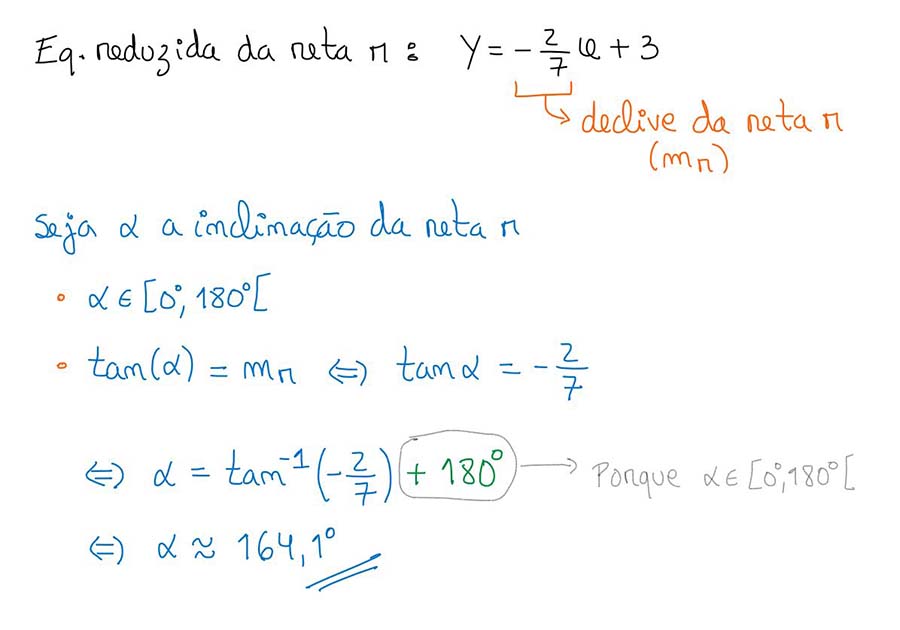 Eq. reduzida da reta r: y = -2/7 x + 3
declive da reta r
(mr)
Seja α a inclinação da reta r
• α ∈ [0°, 180°[
• tan(α) = mr ⇔ tan α = -2/7
⇔ α = tan⁻¹(-2/7) + 180° → Porque α ∈ [0°, 180°[
⇔ α ≈ 164,1°